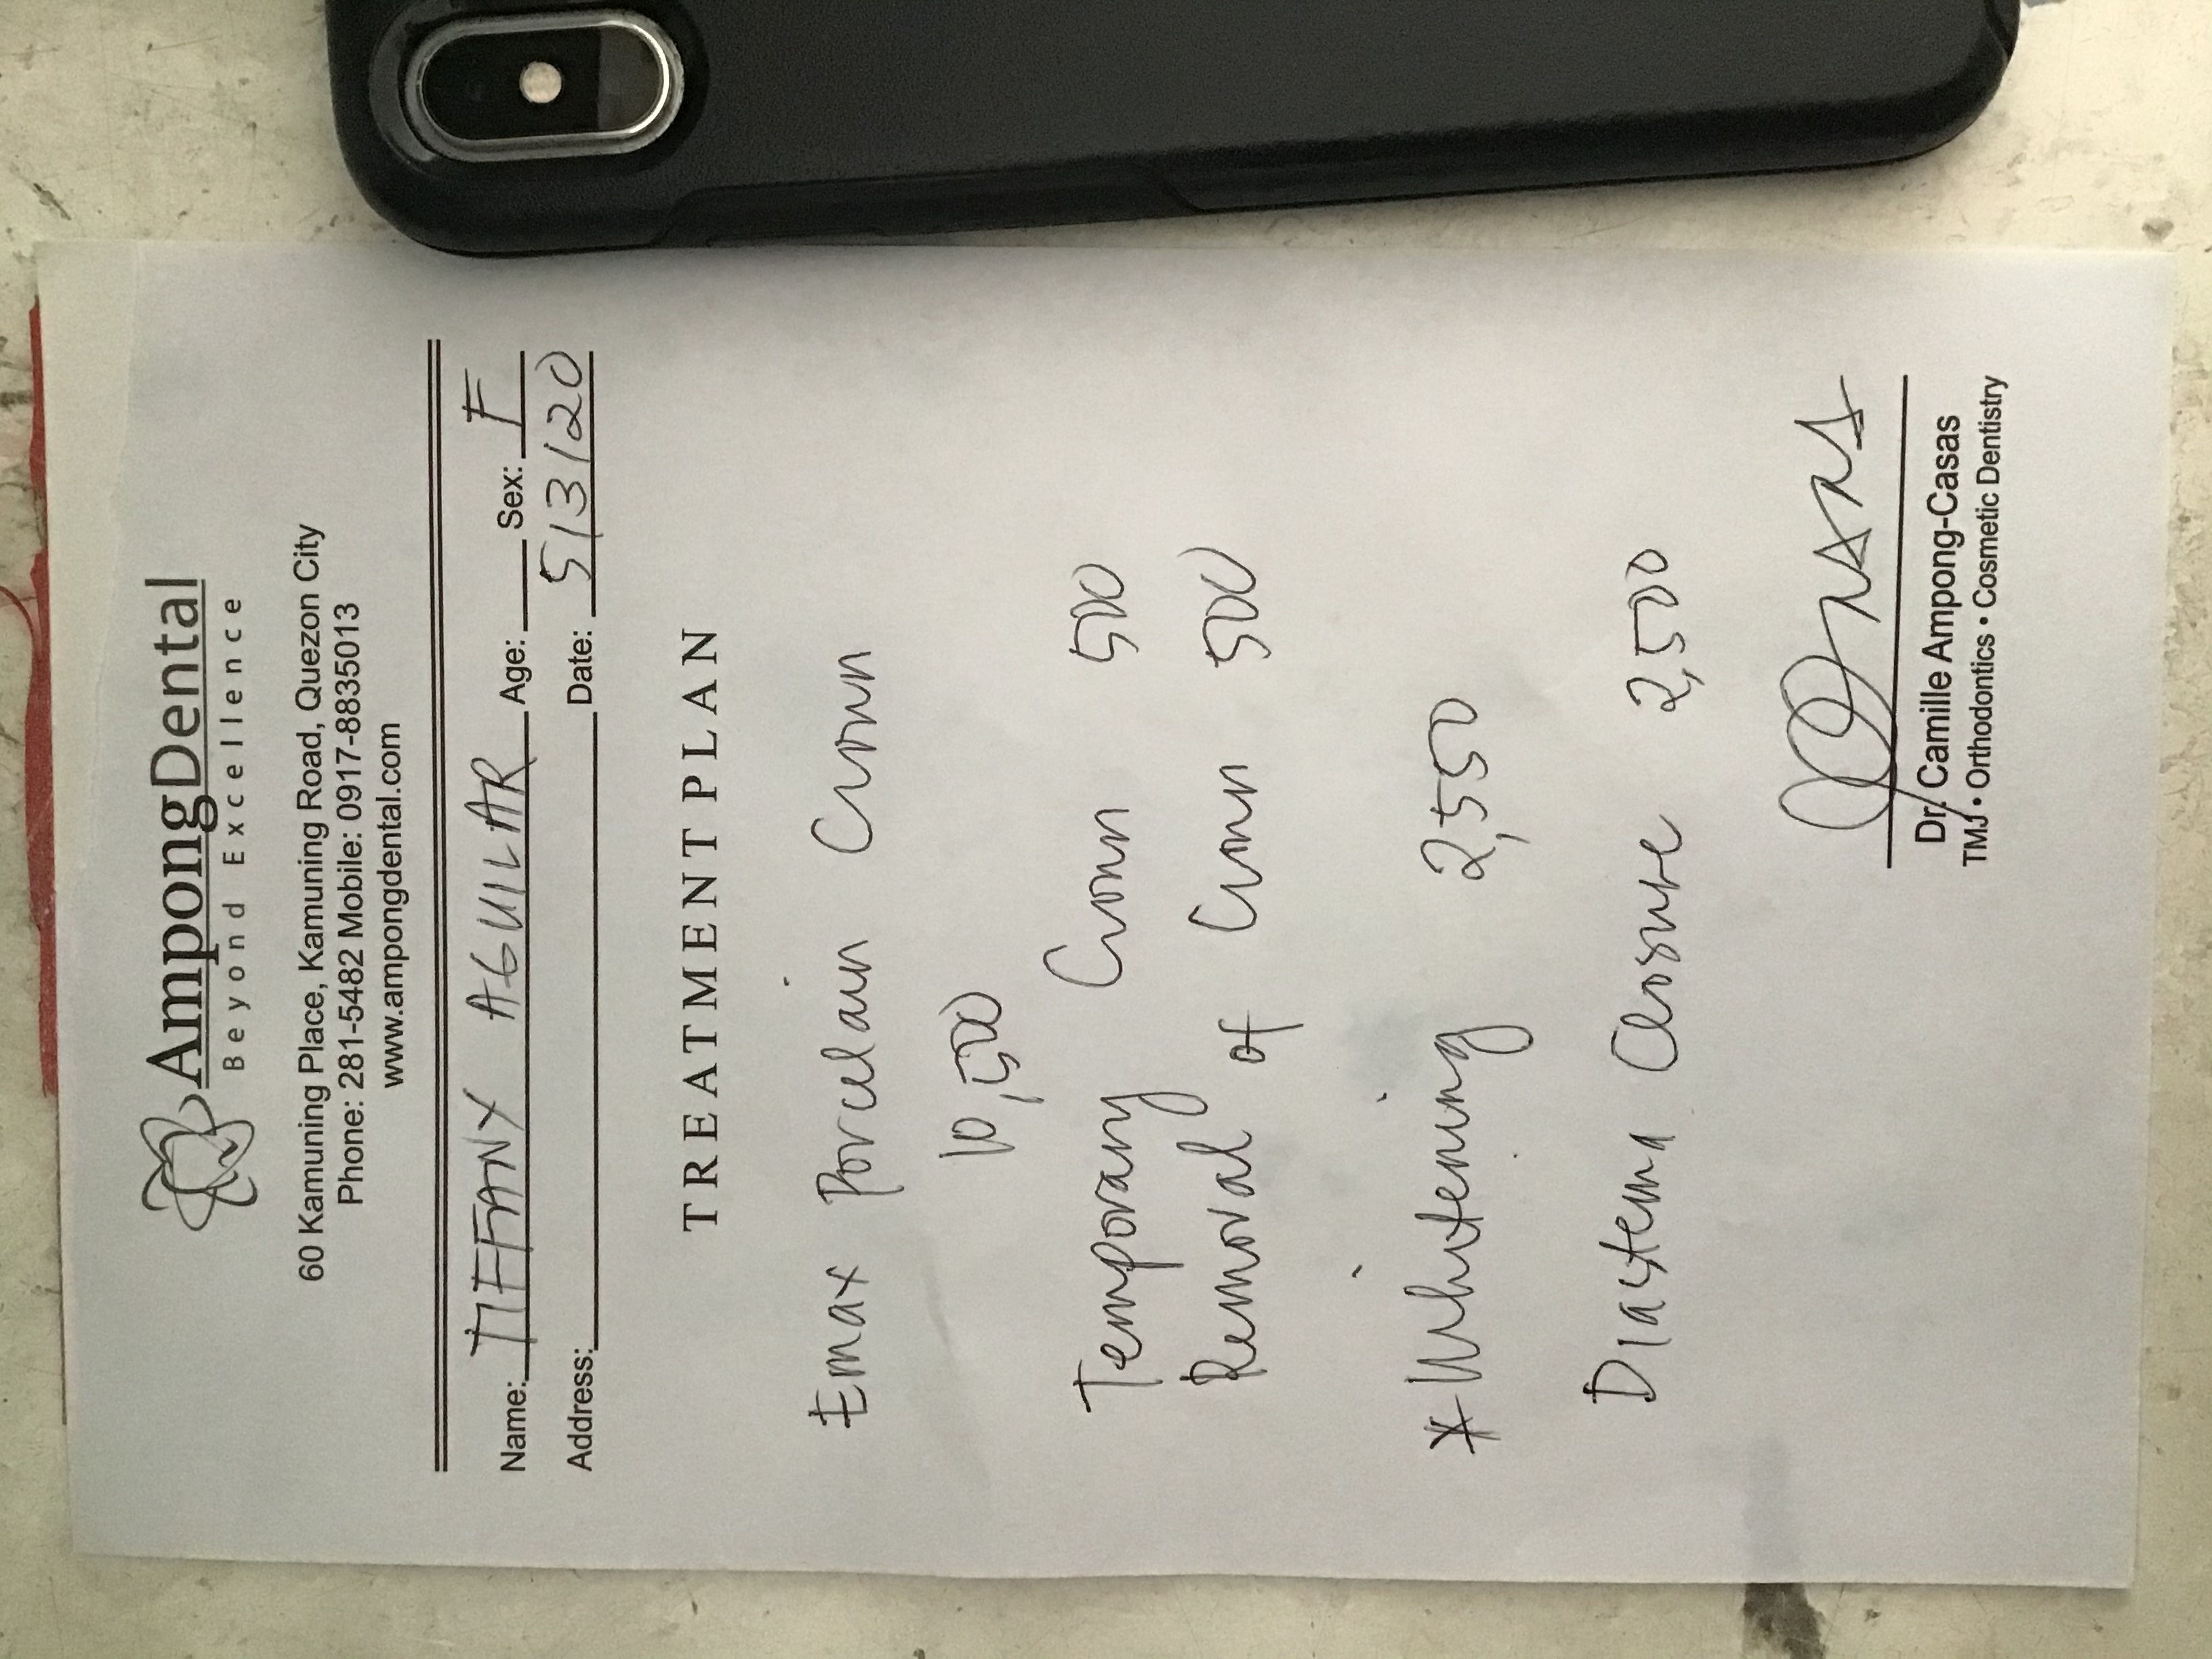 AmpongDental
Beyond Excellence
60 Kamuning Place, Kamuning Road, Quezon City
Phone: 281-5482 Mobile: 0917-8835013
www.ampongdental.com
Name: TIFFANY AGUILAR Age: Sex: F
Address: Date: 5/3/20
TREATMENT PLAN
Emax Porcelain Crown
10,500
Temporary Crown 500
Removal of Crown 500
*Whitening 2,550
Diastema Closure 2,500
Dr. Camille Ampong-Casas
TMJ • Orthodontics • Cosmetic Dentistry